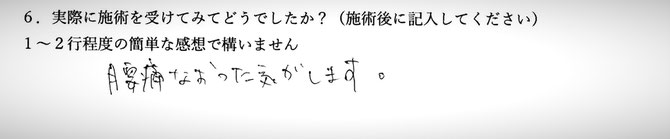 6．実際に施術を受けてみてどうでしたか？（施術後に記入してください）
1～2行程度の簡単な感想で構いません
腰痛なおった気がします。